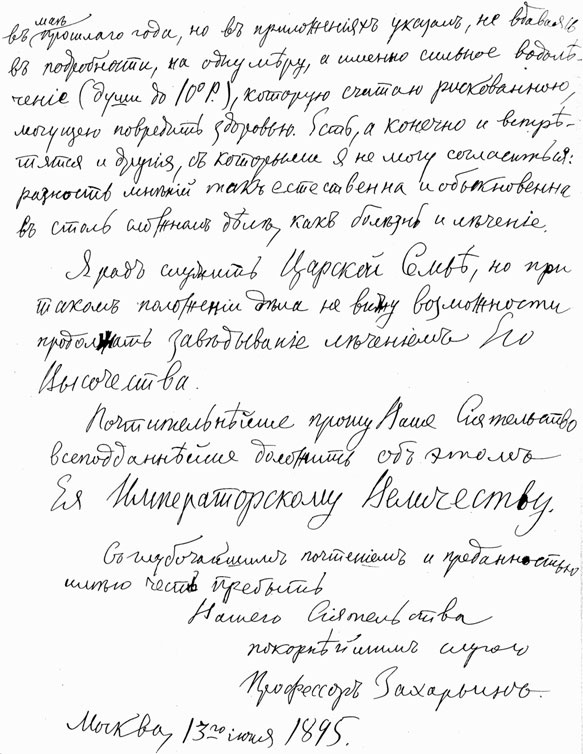 маѣ
въ прошлаго года, но въ приложеніяхъ указалъ, не вдаваясь
въ подробности, на одну мѣру, а именно сильное водолѣ-
ченіе (души до 10° Р.), которую считаю рискованною,
могущею повредить здоровью. Есть, а конечно и встрѣ-
тятся и другія, съ которыми я не могу согласиться:
разность мнѣній такъ естественна и обыкновенна
въ столь сложномъ дѣлѣ, какъ болѣзнь и лѣченіе.
Я радъ служить Царской Семьѣ, но при
такомъ положеніи дѣла не вижу возможности
продолжать завѣдываніе лѣченіемъ Его
Высочества.
Почтительнѣйше прошу Ваше Сіятельство
всеподданнѣйше доложить объ этомъ
Ея Императорскому Величеству.
Съ глубочайшимъ почтеніемъ и преданностью
имѣю честь пребыть
Вашего Сіятельства
покорнѣйшимъ слугою
Профессоръ Захарьинъ.
Москва, 13го іюня 1895.